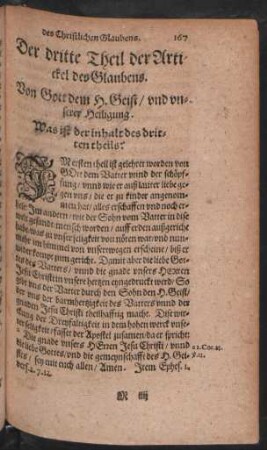 des Christlichen Glaubens. 167
Der dritte Theil der Arti-
ckel des Glaubens.
Von Gott dem H. Geist / vnd vn-
serer Heiligung.
Was ist der inhalt des drit-
ten theils?
IM ersten theil ist gelehret worden von
GOtt dem Vatter vnnd der schöpf-
fung / vnnd wie er auß lauter liebe ge-
gen vns / die er zu kinder angenom-
men hat: alles erschaffen vnd noch er-
halte. Im andern / wie der Sohn vom Vatter in dise
welt gesandt mensch worden / auff erden außgerichtet
habe was zu vnser seligkeit von nöten war / vnd nun-
mehr im himmel von vnsertwegen erscheine / biß er
widerkompt zum gericht. Damit aber die liebe Got-
tes des Vatters / vnnd die gnade vnsers HErren
Jesu Christi in vnsere hertzen eyngedruckt werd / So
vns der Vatter durch den Sohn den H. Geist /
der vns der barmhertzigkeit des Vatters vnnd der
gnaden Jesu Christi theilhafftig mache. Dise wir-
ckung der Dreyfaltigkeit in dem hohen werck vnse-
rer seligkeit / fasset der Apostel zusamen / da er spricht:
Die gnade vnsers HErren Jesu Christi / vnnd
die liebe Gottes / vnd die gemeynschafft des H. Gei-
stes / sey mit euch allen / Amen. Item Ephes. 1.
vers. 2. 7. 13.
2. Cor. 13.
M iiij